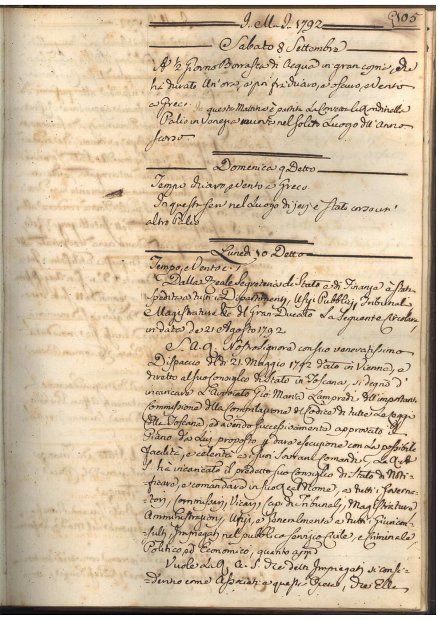 105
J. M. J. 1792
Sabato 8 Settembre
A ½ Giorno Borrasca di Acqua in gran copia, che
ha durato un'ora, e poi fra chiaro, e oscuro, e Vento
a Greco. In questa Mattina è partita La Corvetta La Rondinella
Palio in Venezia nel solito Luogo dell'Anno
scorso
Domenica 9 Detto
Tempo chiaro, e Vento a Greco
In questa sera nel Luogo di jeri è stato corso un'
altro Palio
Lunedì 10 Detto
Tempo, e Vento c. s.
Dalla Reale Segreteria di Stato e di Finanze è stata
spedita a tutti i Dipartimenti, Ufizj Pubblici, Tribunali
Magistrature &c del Gran Ducato La seguente Circolare
in data de 21 Agosto 1792
S. A. R. Nostro Signore con suo veneratissimo
Dispaccio del dì 21 Maggio 1792 dato in Vienna, e
diretto al suo Consiglio di Stato in Toscana, si degnò d'
incaricare L'Avvocato Gio: Maria Lampredi dell'important.
Commissione della Compilazione del Codice di tutte Le Leggi
della Toscana, ed avendo successivamente approvato il
Piano da Lui proposto per dare esecuzione con La possibile
facilità, e celerità a suoi Sovrani Comandi, La R. A.
S. ha incaricato il predetto suo Consiglio di Stato di Noti-
ficare, e comandare in suo Real Nome, a tutti i Governa-
tori, Commissarj, Vicarj, Capi di Tribunali, Magistrature
Amministrazioni, Ufizj, e generalmente a tutti i Giusdi-
centi, Impiegati nel pubblico servizio Civile, e Criminale
Politico, ed Economico, quanto appo
Vuole La R. A. S. che detti Impiegati si consi-
derino come a questa Opera, che Ella